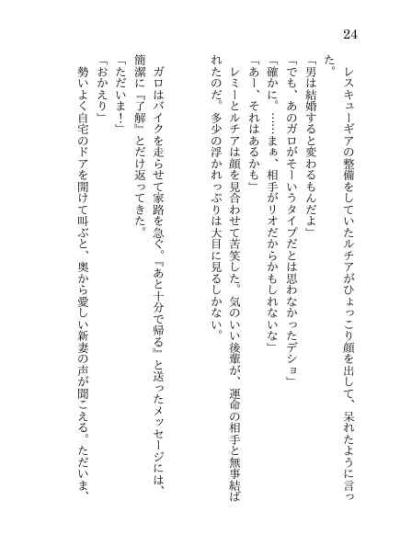 24
　レスキューギアの整備をしていたルチアがひょっこり顔を出して、呆れたように言っ
た。
「男は結婚すると変わるもんだよ」
「でも、あのガロがそーいうタイプだとは思わなかったデショ」
「確かに。……まぁ、相手がリオだからかもしれないな」
「あー、それはあるかも」
　レミーとルチアは顔を見合わせて苦笑した。気のいい後輩が、運命の相手と無事結ば
れたのだ。多少の浮かれっぷりは大目に見るしかない。
　ガロはバイクを走らせて家路を急ぐ。『あと十分で帰る』と送ったメッセージには、
簡潔に『了解』とだけ返ってきた。
「ただいま！」
「おかえり」
　勢いよく自宅のドアを開けて叫ぶと、奥から愛しい新妻の声が聞こえる。ただいま、